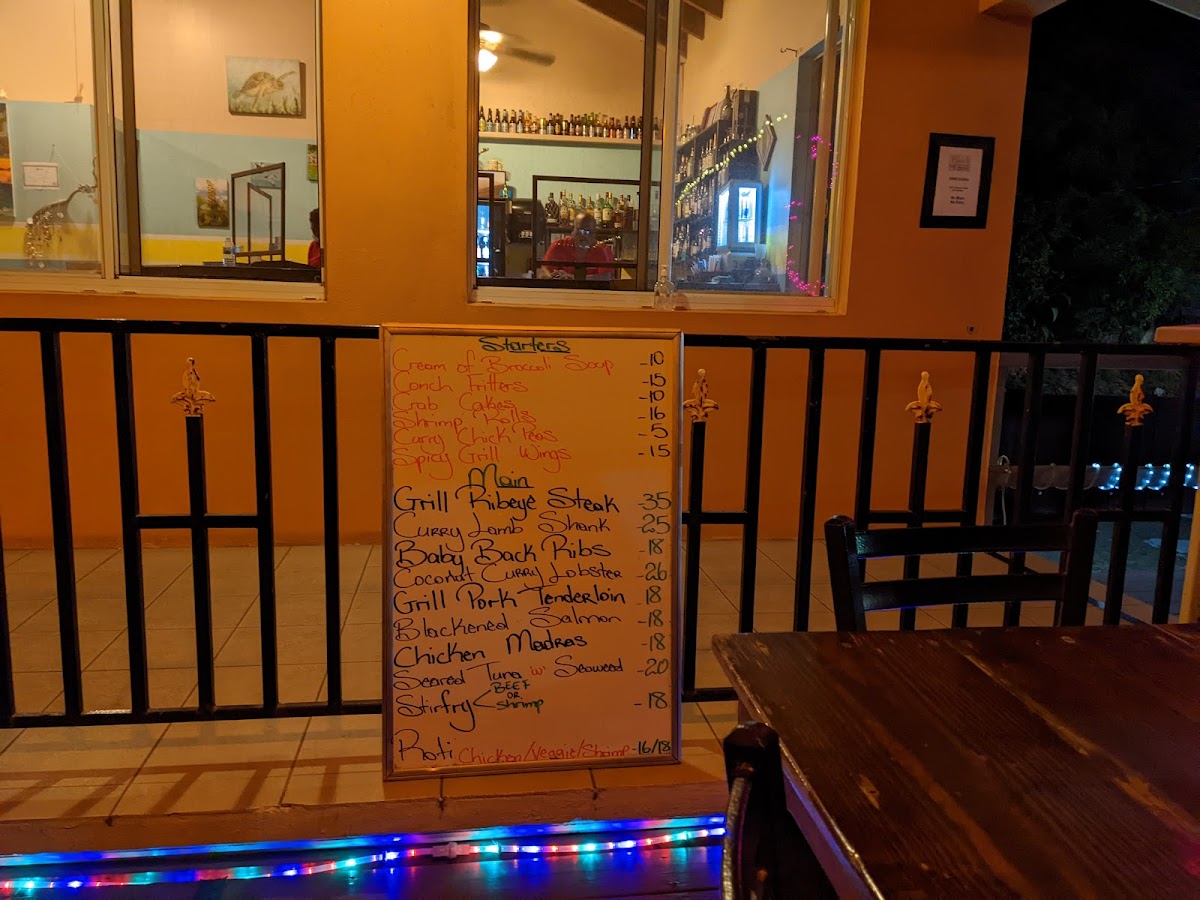 Starters
Cream of Broccoli Soup -10
Conch Fritters -15
Crab Cakes -10
Shrimp Rolls -16
Curry Chick Peas -5
Spicy Grill Wings -15
Main
Grill Ribeye Steak -35
Curry Lamb Shank -25
Baby Back Ribs -18
Coconut Curry Lobster -26
Grill Pork Tenderloin -18
Blackened Salmon -18
Chicken Madras -18
Seared Tuna 'w' Seaweed -20
Stirfry < BEEF or shrimp -18
Roti Chicken/Veggie/Shrimp -16/18